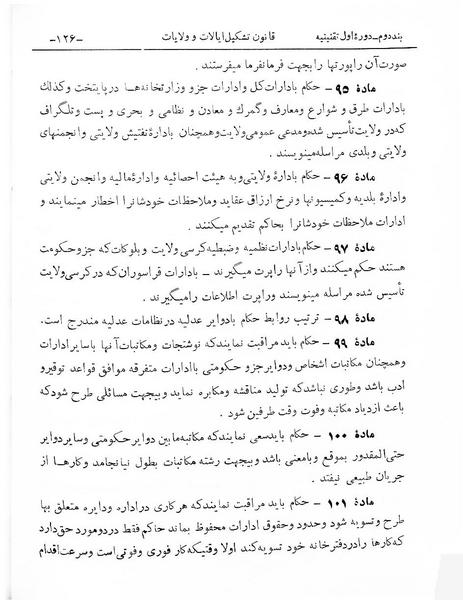 بنددوم_دورهٔ اول تقنینیه قانون تشکیل ایالات و ولایات -۱۲۶-
صورت آن راپورتها را بجهت فرمانفرما میفرستند .
مادهٔ ۹۵ - حکام بادارات کل و ادارات جزو وزارتخانه‌ها در پایتخت و کذلك
بادارات طرق و شوارع و معارف و گمرك و معادن و نظامی و بحری و پست و تلگراف
که در ولایت تأسیس شده و مدعی عمومی ولایت و همچنان بادارهٔ تفتیش ولایتی و انجمنهای
ولایتی و بلدی مراسله مینویسند .
مادهٔ ۹۶ - حکام بادارهٔ ولایتی و به هیئت احصائیه و ادارهٔ مالیه و انجمن ولایتی
و ادارهٔ بلدیه و کمیسیونها و نرخ ارزاق عقاید و ملاحظات خودشانرا اخطار مینمایند و
ادارات ملاحظات خودشانرا بحاکم تقدیم میکنند .
مادهٔ ۹۷ - حکام بادارات نظمیه و ضبطیه کرسی ولایت و بلوکات که جزو حکومت
هستند حکم میکنند و از آنها راپرت میگیرند - بادارات قراسوران که در کرسی ولایت
تأسیس شده مراسله مینویسند و راپرت اطلاعات را میگیرند .
مادهٔ ۹۸ - ترتیب روابط حکام بادوایر عدلیه در نظامات عدلیه مندرج است.
مادهٔ ۹۹ - حکام باید مراقبت نمایند که نوشتجات و مکاتبات آنها با سایر ادارات
و همچنان مکاتبات اشخاص و دوایر جزو حکومتی با ادارات متفرقه موافق قواعد توقیر و
ادب باشد و طوری نباشد که تولید مناقشه و مکابره نماید و بیجهت مسائلی طرح شود که
باعث ازدیاد مکاتبه و فوت وقت طرفین شود .
مادهٔ ۱۰۰ - حکام باید سعی نمایند که مکاتبه مابین دوایر حکومتی و سایر دوایر
حتی‌المقدور بموقع و بامعنی باشد و بیجهت رشته مکاتبات بطول نیانجامد و کارها از
جریان طبیعی نیفتد .
مادهٔ ۱۰۱ - حکام باید مراقبت نمایند که هر کاری در اداره و دایره متعلق بها
طرح و تسویه شود و حدود و حقوق ادارات محفوظ بماند حاکم فقط در دو مورد حق دارد
که کارها را در دفترخانه خود تسویه کند اولا وقتیکه کار فوری و فوتی است و سرعت اقدام